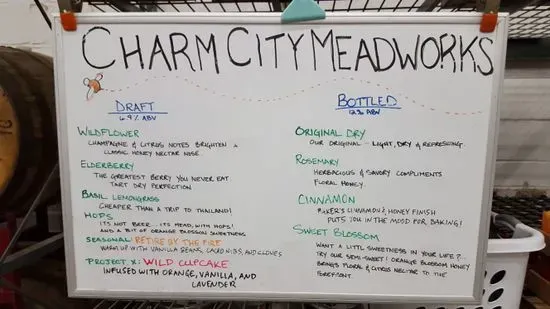 CHARM CITY MEADWORKS
DRAFT
6.9% ABV
WILDFLOWER
CHAMPAGNE & CITRUS NOTES BRIGHTEN A
CLASSIC HONEY NECTAR NOSE.
ELDERBERRY
THE GREATEST BERRY YOU NEVER EAT.
TART DRY PERFECTION.
BASIL LEMONGRASS
CHEAPER THAN A TRIP TO THAILAND!
HOPS
IT'S NOT BEER... ITS MEAD, WITH HOPS!
AND A BIT OF ORANGE BLOSSOM SWEETNESS
SEASONAL RETIRE BY THE FIRE
WARM UP WITH VANILLA BEANS, CACAO NIBS, AND CLOVES
PROJECT X: WILD CUPCAKE
INFUSED WITH ORANGE, VANILLA, AND
LAVENDER
BOTTLED
12% ABV
ORIGINAL DRY
OUR ORIGINAL - LIGHT, DRY & REFRESHING.
ROSEMARY
HERBACIOUS & SAVORY COMPLIMENTS
FLORAL HONEY.
CINNAMON
BAKER'S CINNAMON & HONEY FINISH
PUTS YOU IN THE MOOD FOR BAKING!
SWEET BLOSSOM
WANT A LITTLE SWEETNESS IN YOUR LIFE?...
TRY OUR SEMI-SWEET! ORANGE BLOSSOM HONEY
BRINGS FLORAL & CITRUS NECTAR TO THE
FOREFRONT.